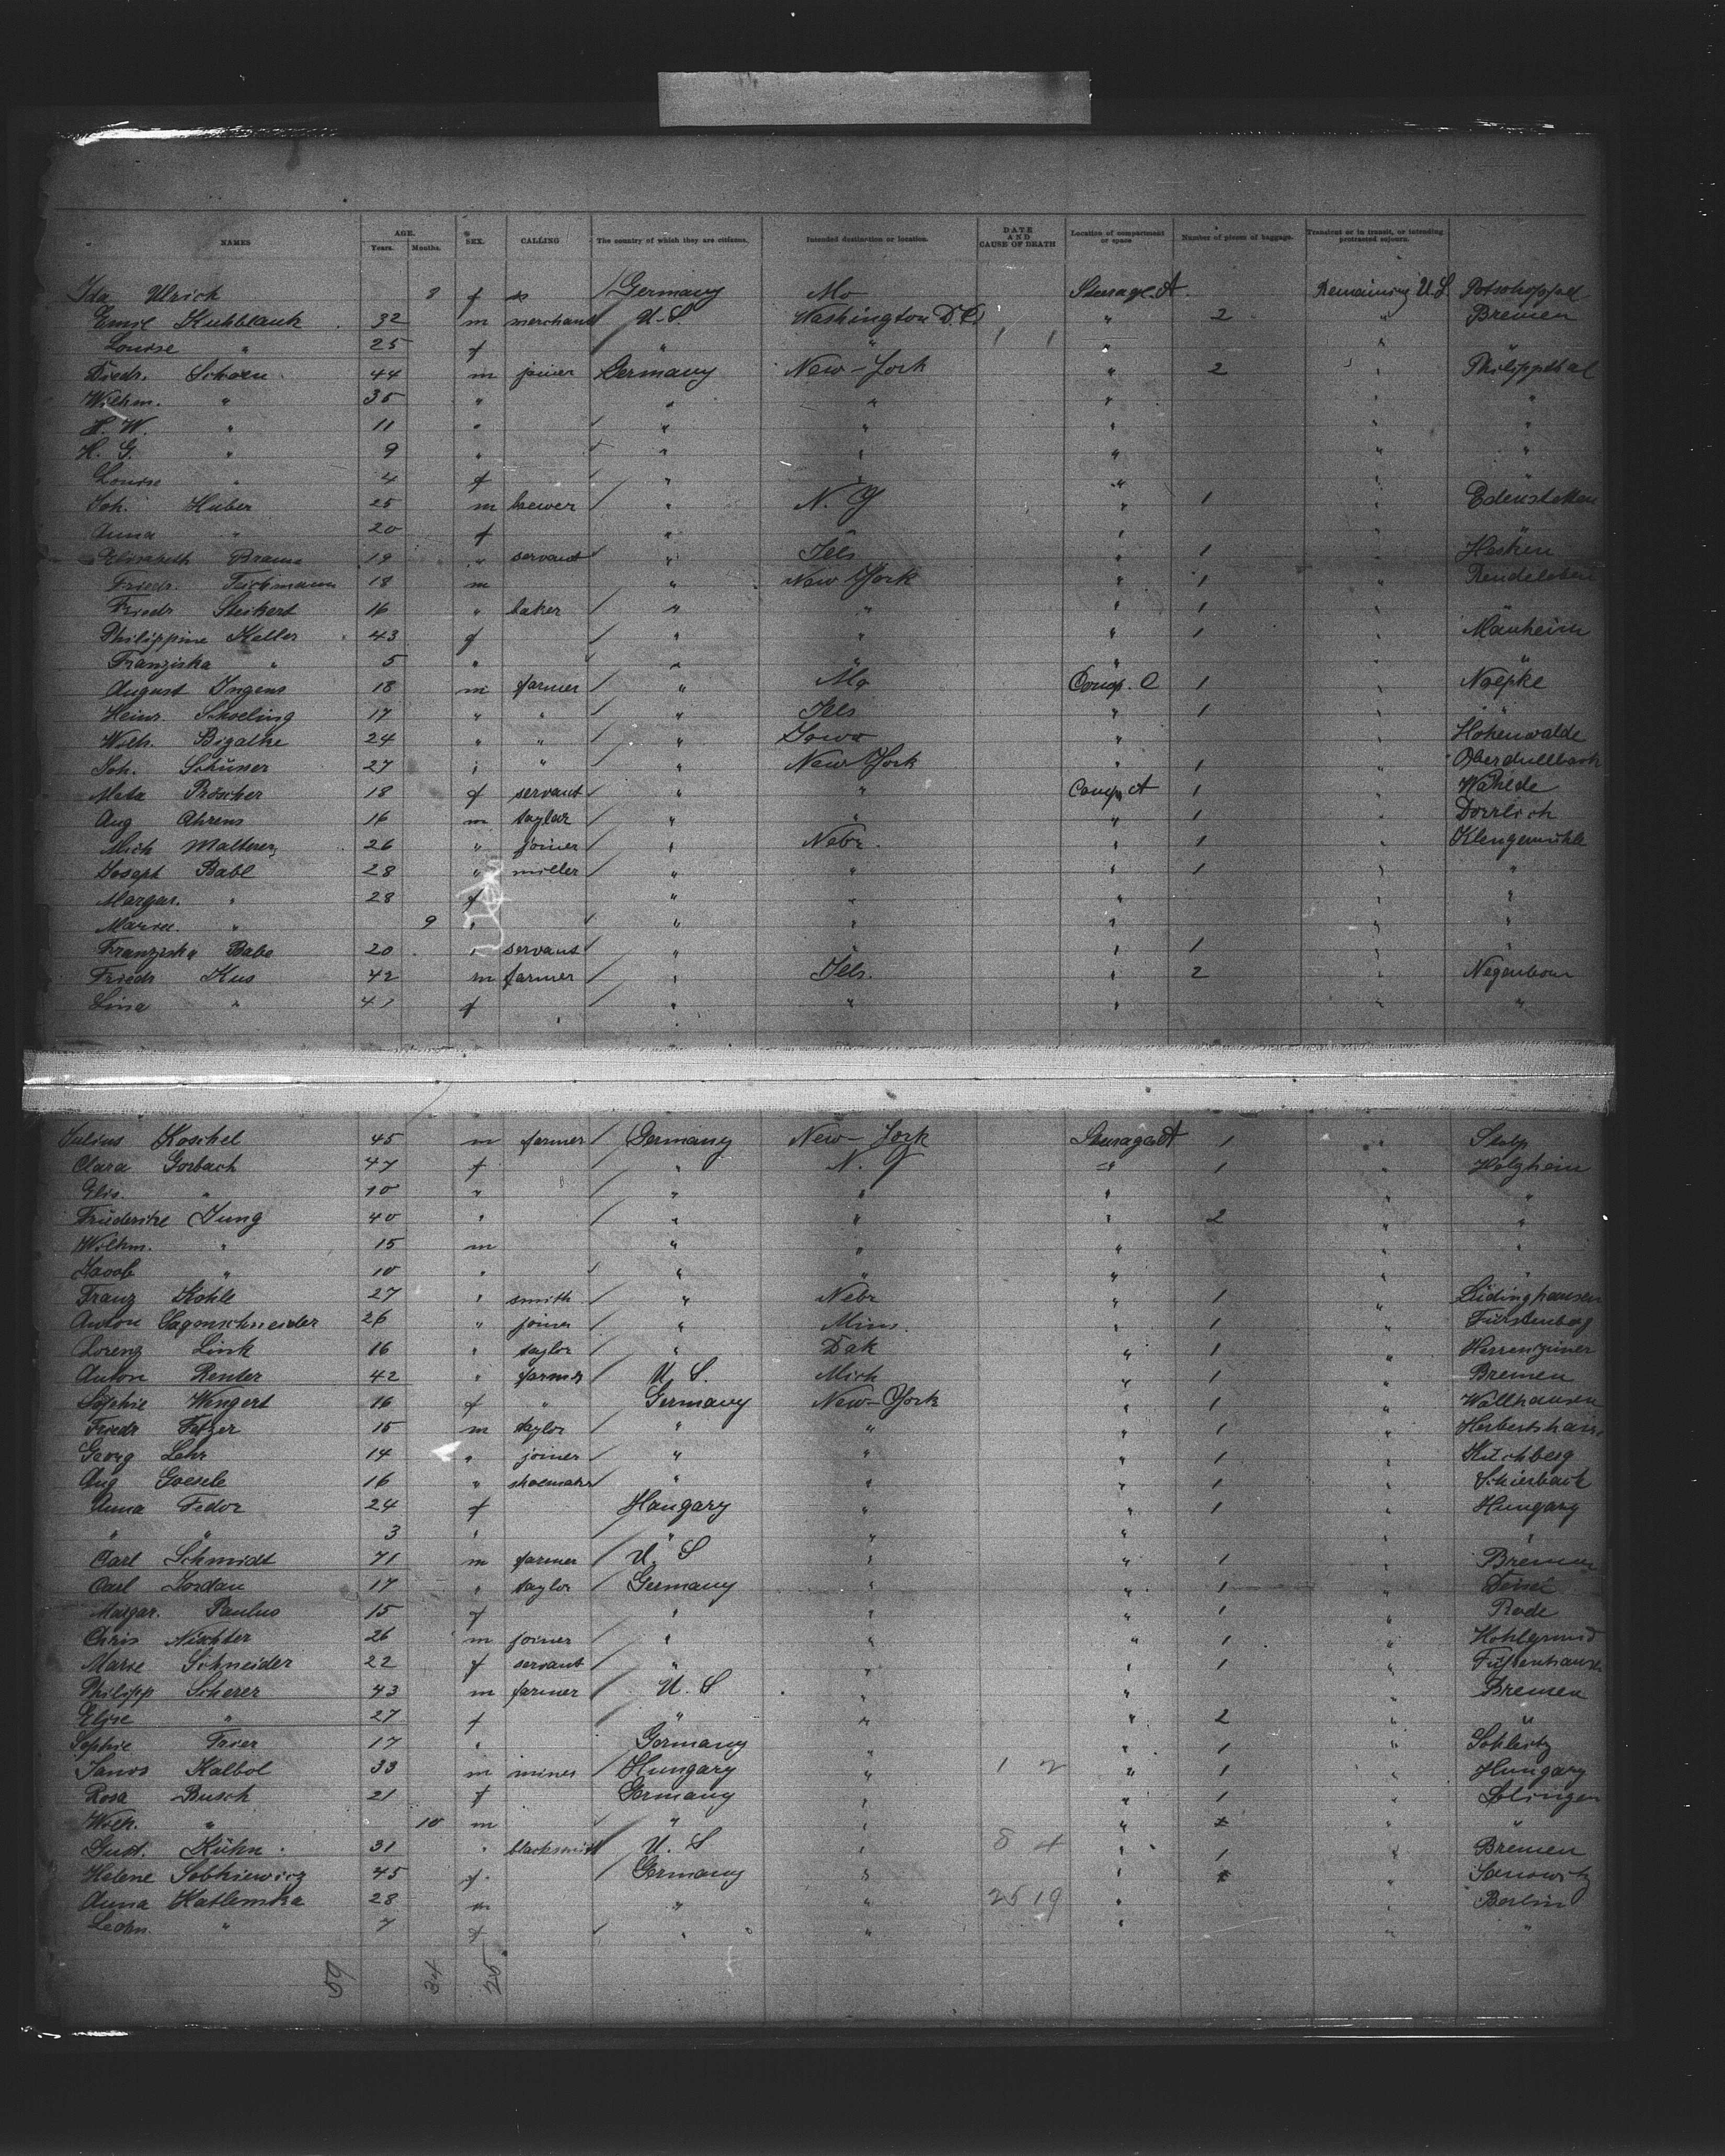 NAMES AGE. Years. Months. SEX. CALLING The country of which they are citizens. Intended destination or location. DATE AND CAUSE OF DEATH Location of compartment or space Number of pieces of baggage. Transient or in transit, or intending protracted sojourn.
Ida Ulrich 8 f Germany Mo Steerage A Remaining U.S.
Emil Kuhblank 32 m merchant U.S. Washington D.C. " 2 " Bremen
Louise " 25 f " " 1 1 " "
Diedr. Schoen 44 m joiner Germany New-York " 2 " Philippsthal
Wilhm. " 35 " " " " " "
H. W. " 11 " " " " " "
H. G. " 9 " " " " " "
Louise " 4 f " " " "
Joh. Huber 25 m " N.Y " 1 " Edenstetten
Anna " 20 f " " "
Elisabeth Brauns 19 " servant " Ills " 1 " Hesken
Friedr. Teichmann 18 m " New York " 1 "
Friedr. Steikert 16 " baker " " " 1 "
Philippine Keller 43 f " " " 1 " Manheim
Franziska " 5 " " " " " "
August Ingens 18 m farmer " Mo Comp. C 1 " Noepke
Heinr. Schoeling 17 " " " Ills " 1 " "
Wilh. Bizalke 24 " " " Iowa " " Hohenwalde
Joh. Schüner 27 " " " New York " 1 "
Meta Pröscher 18 f servant " " Comp. A 1 " Wahlde
Aug Ahrens 16 m taylor " " " 1 "
Mich Malterer 26 " joiner " Nebr. " 1 " Klengemühle
Joseph Babl 28 " miller " " " 1 " "
Margar. " 28 f " " " " "
Maria " 9 " " " " " "
Franziska Babo 20 " servant " " " 1 " "
Friedr Kus 42 m farmer " Ills. " 2 " Negenborn
Lina " 41 f " " " " "
Julius Koschel 45 m farmer Germany New-York Steerage A 1 " Stolp
Clara Gorbach 47 f " N.Y " 1 " Holzheim
Elis. " 10 " " " " " "
Friederike Jung 40 " " " " 2 " "
Wilhm. " 15 m " " " " "
Jacob " 10 " " " " " "
Franz Kohle 27 " smith " Nebr " 1 " Lüdinghausen
Anton Sagenschneider 26 " joiner " Minn. " 1 " Fürstenberg
Lorenz Link 16 " taylor " Dak " 1 "
Anton Renter 42 " farmer U.S. Mich " 1 " Bremen
Sophie Wengert 16 f " Germany New-York " 1 " Wallhausen
Friedr Fetzer 15 m taylor " " " 1 "
Georg Lehr 14 " joiner " " " 1 " Kirchberg
Aug Goesele 16 " shoemaker " " " 1 "
Anna Fedor 24 f Hungary " " 1 " Hungary
" " 3 " " " " " "
Carl Schmidt 71 m farmer U.S " " 1 " Bremen
Carl Jordan 17 " taylor Germany " " 1 "
Margar. Paulus 15 f " " " 1 " Rode
Chris Nischter 26 m joiner " " " 1 " Hohlgrund
Marie Schneider 22 f servant " " " 1 "
Philipp Scherer 43 m farmer U.S " " " Bremen
Elise " 27 f " " " 2 " "
Sophie Trier 17 " Germany " " 1 " Schleitz
Janos Kalbol 33 m miner Hungary " 1 2 " 1 " Hungary
Rosa Busch 21 f Germany " " 1 " Solingen
Wilh. " 10 m " " " "
Gust. Kühn 31 " blacksmith U.S " 8 4 " 1 " Bremen
Helene Sobkiewicz 45 f Germany " " " Janowitz
Anna Katlemska 28 m " " 25 19 " " Berlin
Leon. " 7 f " " " " "
59 34 25